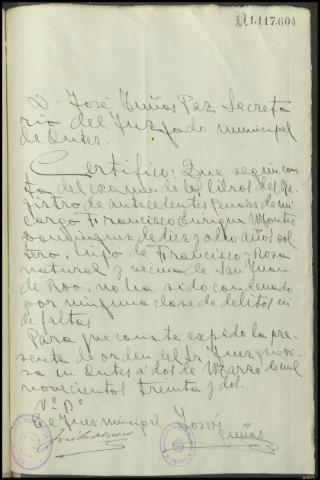 N.1.117.604
D. José Tuñas Paz Secreta
rio del Juzgado municipal
de Outes.
Certifico: Que según cons
ta del examen de los libros del Re
gistro de antecedentes penales de mi
cargo Francisco Enrique Montes
Dominguez de diez y ocho años sol
tero, hijo de Francisco y Rosa
natural y vecino de San Juan
de Roo, no ha sido condenado
por ninguna clase de delitos ni
de faltas
Para que conste expido la pre
sente de orden del Sr. Juez
en Outes a dos de Marzo de mil
novecientos treinta y dos.
Vº Bº
El Juez municipal José
Tuñas